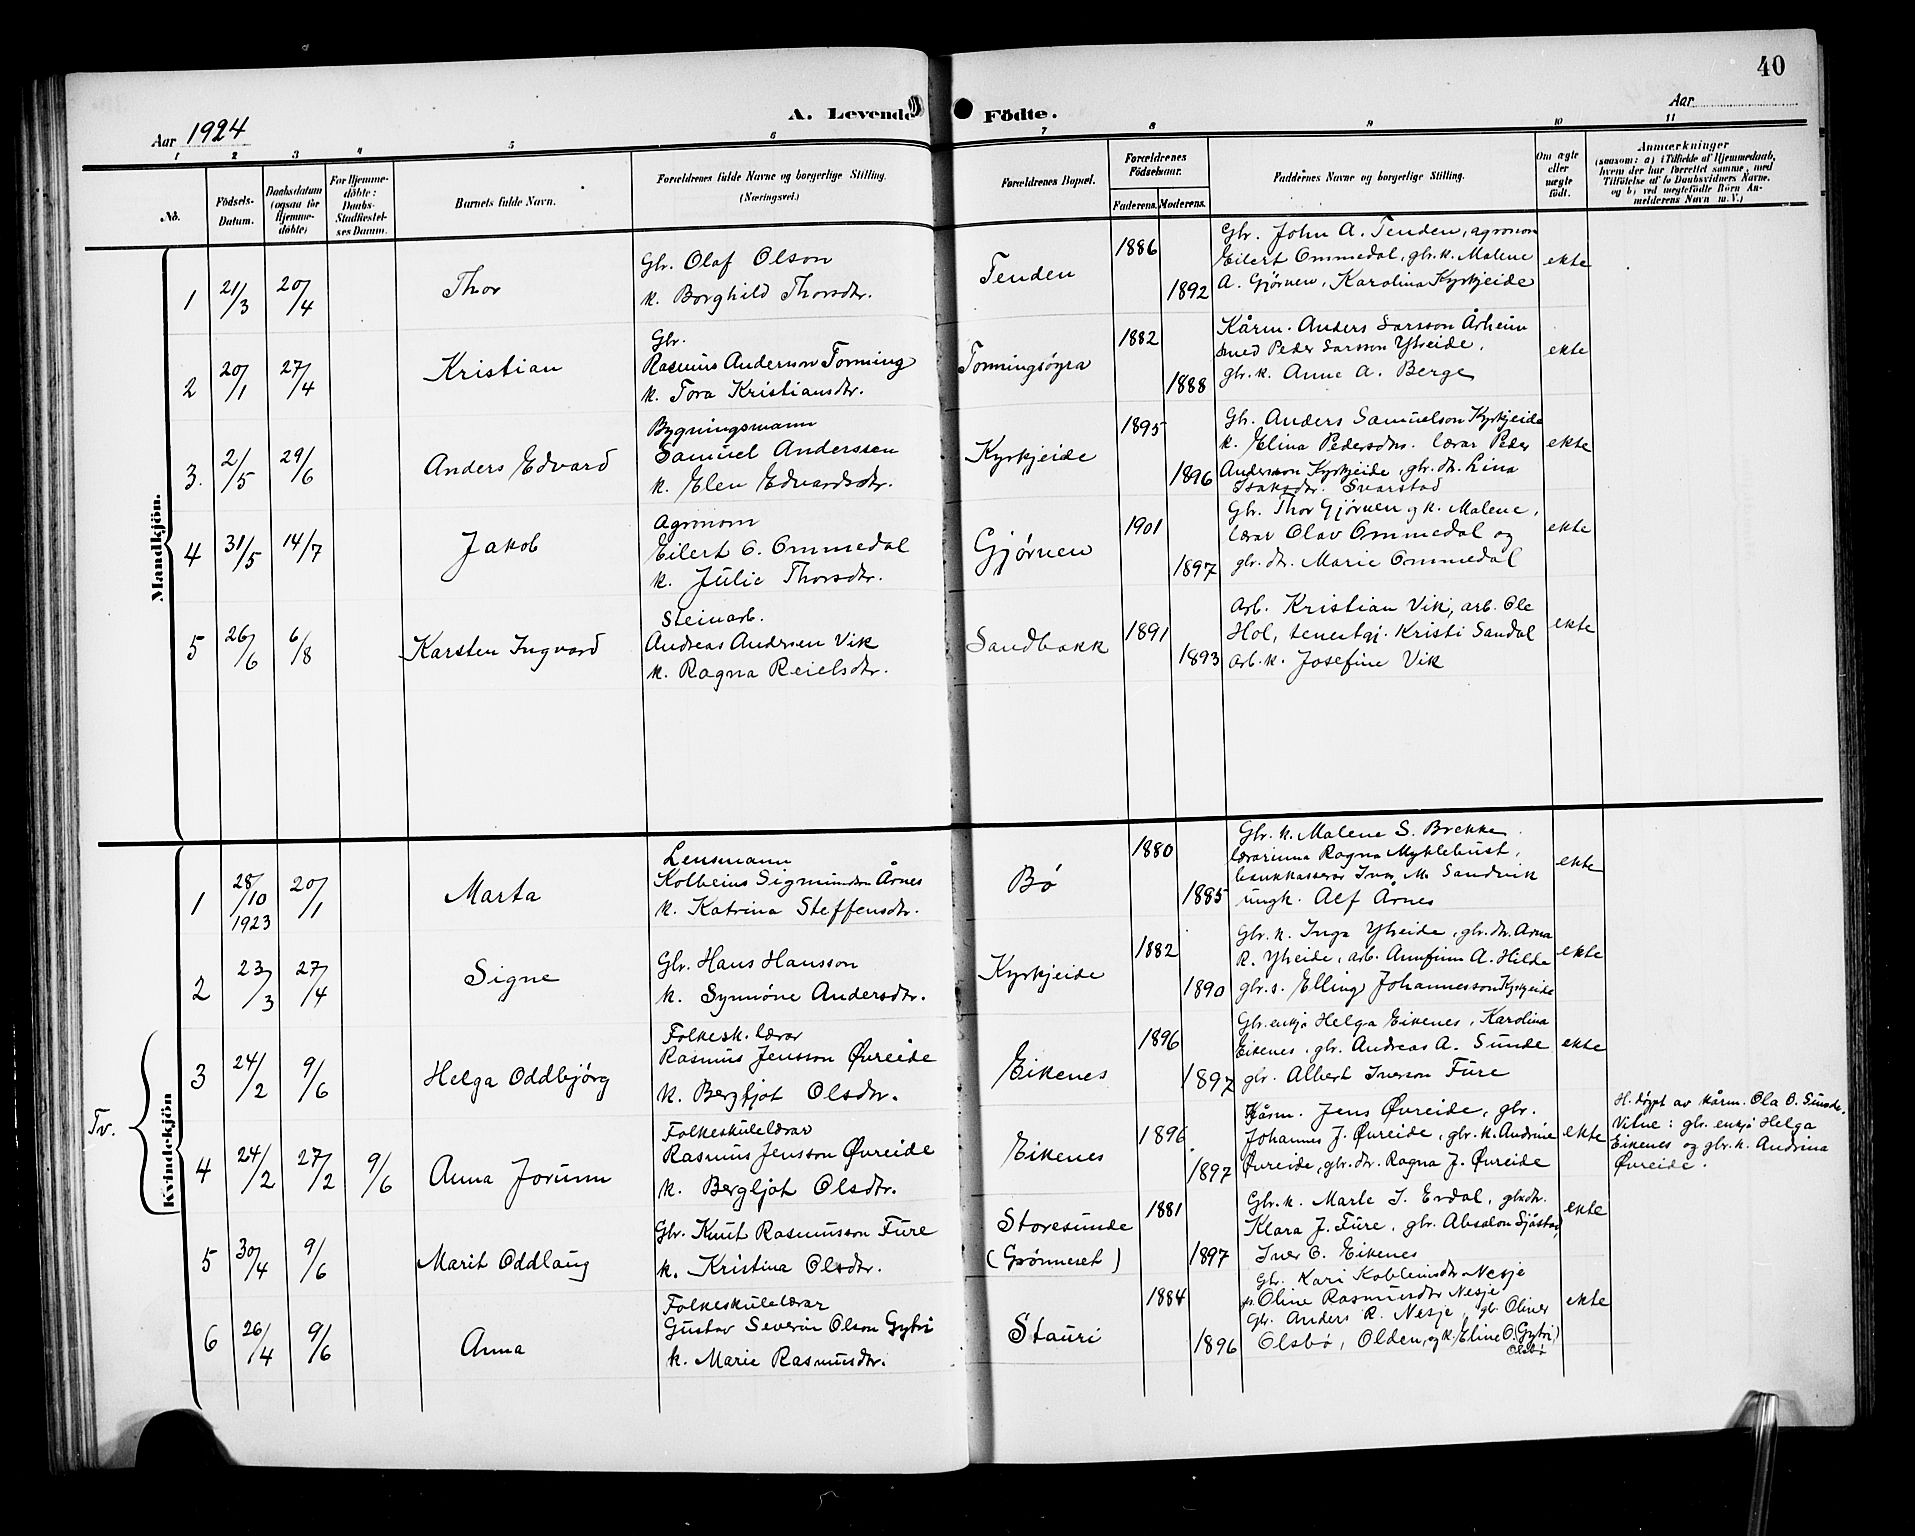 40
Aar 1924
A. Levende Födte.
Aar
1 2 3 4 5 6 7 8 9 10 11
No.
Födsels-Datum.
Daabsdatum (ogsaa for Hjemme-döbte)
For Hjemme-döbte: Daabs-Stadfæstel-ses Datum.
Barnets fulde Navn.
Forældrenes fulde Navne og borgerlige Stilling. (Næringsvei.)
Forældrenes Bopæl.
Forældrenes Födselsaar.
Faderens. Moderens.
Faddernes Navne og borgerlige Stilling.
Om ægte eller uægte födt.
Anmærkninger
(saasom: a) i Tilfælde af Hjemmedaab,
hvem der har forrettet samme, med
Tilföielse af to Daabsvidners Navne.
og b) ved uægtefödte Börn An-
melderens Navn m. V.)
Mandkjön.
1 21/3 20/4 Thor
Gbr. Olaf Olson
k. Borghild Thorsdtr.
Tenden 1886 1892
Gbr. John A. Tenden, agronom
Eilert Ommedal, gbr.k. Malene
A. Gjørnen, Karolina Kyrkjeide
ekte
2 20/1 27/4 Kristian
Gbr.
Rasmus Anderson Tomning
k. Tora Kristiansdtr.
Tomningsøyra 1882 1888
Kårm. Anders Larsson Årheim
smed Peder Larsson Ytreide,
gbr.k. Anne A. Berge
ekte
3. 2/5 29/6 Anders Edvard
Bygningsmann
Samuel Anderssen
k. Elen Edvardsdtr.
Kyrkjeide 1895 1896
Gbr. Anders Samuelson Kyrkjeide
k. Elina Pedersdtr. lærar Peder
Anderson Kyrkjeide, gbr.dtr. Lina
Isaksdtr. Svarstad
ekte
4 31/5 14/7 Jakob
Agronom
Eilert O. Ommedal
k. Julie Thorsdtr.
Gjørnen 1901 1897
Gbr. Thor Gjørnen og k. Malene,
lærar Olav Ommedal og
gbr. dtr. Marie Ommedal
ekte
5 26/6 6/8 Karsten Ingvard
Steinarb.
Andreas Andersen Vik
k. Ragna Reielsdtr.
Sandbakk 1891 1893
Arb. Kristian Vik, arb. Ole
Hol, tenestgj. Kristi Sandal
arb.k. Josefine Vik
ekte
Kvindekjön
1 28/10 1923 20/1 Marta
Lensmann
Kolbeins Sigmundson Årnes
k. Katrina Steffensdtr.
Bø 1880 1885
Gbr.k. Malene S. Brekke
lærarinna Ragna Myklebust,
bankkasserar Iver M. Sandvik
ungk. Alf Årnes
ekte
2 23/3 27/4 Signe
Gbr. Hans Hansson
k. Synnöne Andersdtr.
Kyrkjeide 1882 1890
Gbr.k. Inga Ytreide, gbr.dtr. Anna
R. Ytreide, arb. Arnfinn A. Hilde
gbr.s. Elling Johannesson Kyrkjeide
ekte
Tv.
3 24/2 9/6 Helga Oddbjörg
Folkesk. lærar
Rasmus Jensson Øvreide
k. Bergljot Olsdtr.
Eikenes 1896 1897
Gbr.enkje Helga Eikenes, Karolina
Eikenes, gbr. Andreas A. Sunde
gbr. Albert Iverson Fure
ekte
4 24/2 27/2 9/6 Anna Jorunn
Folkeskulelærar
Rasmus Jensson Øvreide
k. Bergljot Olsdtr.
Eikenes 1896 1897
Kårm. Jens Øvreide, gbr.
Johannes J. Øvreide, gbr.k. Andrine
Øvreide, gbr.dtr. Ragna J. Øvreide
ekte
H. döypt av kårm. Ola O. Sunde.
Vitne: gbr. enkje Helga
Eikenes og gbr.k. Andrina
Øvreide.
5 30/4 9/6 Marit Oddlaug
Gbr. Knut Rasmusson Fure
k. Kristina Olsdtr.
Storesunde
(Grønneset) 1881 1897
Gbr.k. Marte I. Erdal, gbrdtr.
Klara J. Fure, gbr. Absalon Sjåstad,
Iver O. Eikenes
ekte
6 26/4 9/6 Anna
Folkeskulelærar
Gustav Severin Olson Gytri
k. Marie Rasmusdtr.
Stauri 1884 1896
Gbr. Kari Kolbeinsdtr Nesje
p. Oline Rasmusdtr Nesje
Gbr. Anders R. Nesje, gbr. Oliver
Olsbø, Olden, og k. Eline O. (Gytri)
Olsbø
ekte